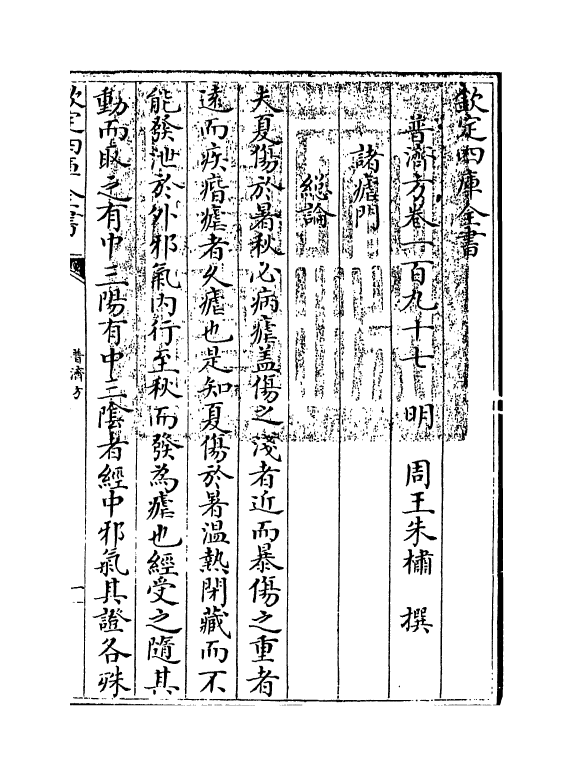 欽定四庫全書
普濟方卷一百九十七　明　周王朱橚　撰
諸瘧門
總論
夫夏傷於暑秋必病瘧盖傷之淺者近而暴傷之重者
逺而疾痎瘧者久瘧也是知夏傷於暑温熱閉藏而不
能發泄於外邪氣内行至秋而發為瘧也經受之隨其
動而取之有中三陽有中三隂者經中邪氣其證各殊
欽定四庫全書
普濟方
一